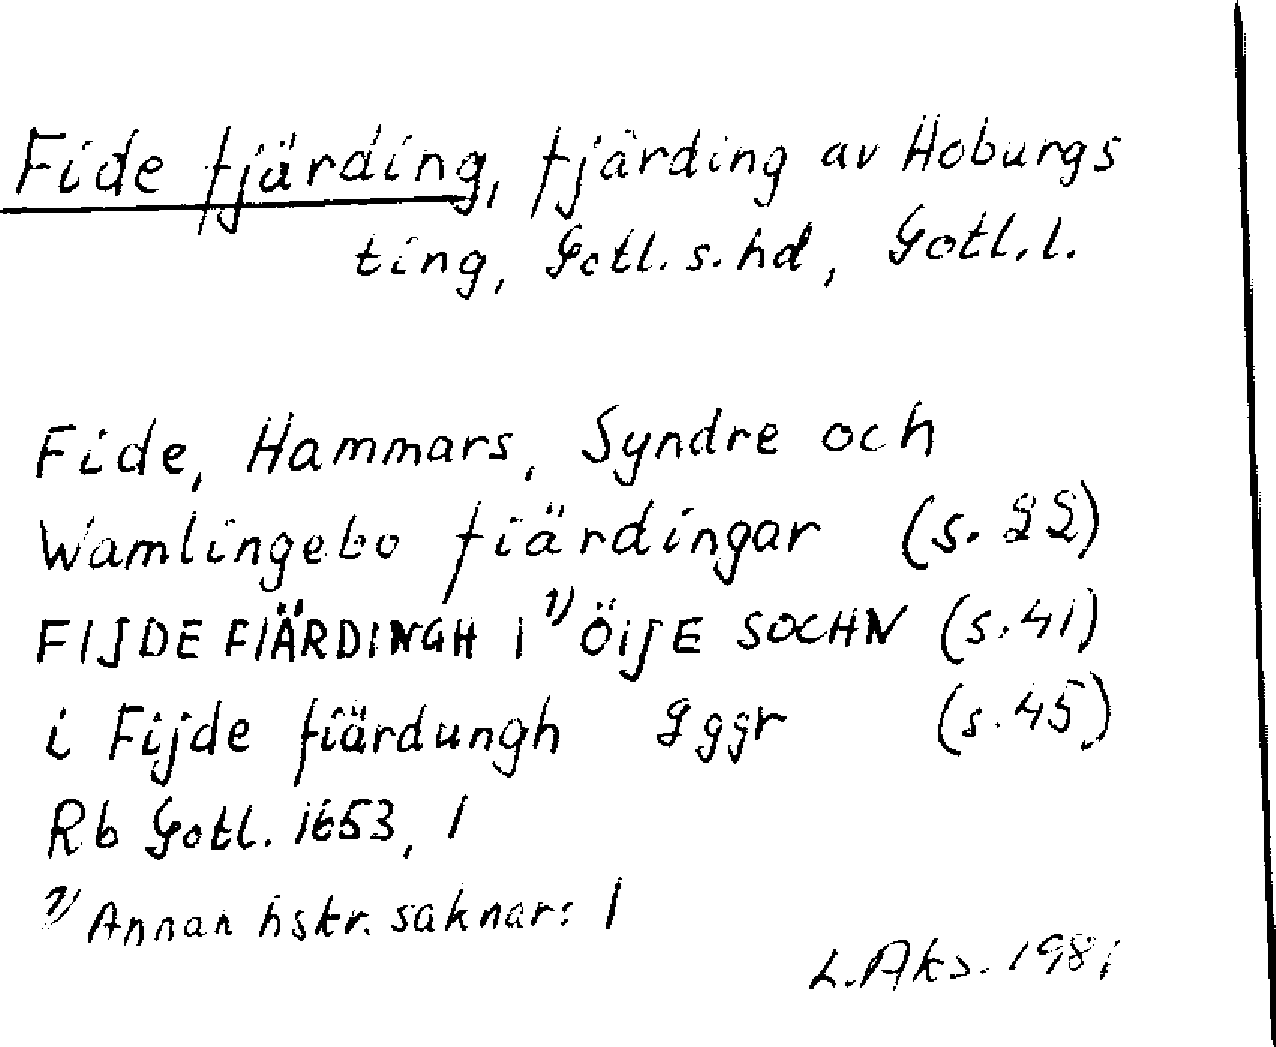 Fide fjärding, fjärding av Hoburgs
ting, Gotl. s. hd, Gotl. l.
Fide, Hammars, Syndre och
Wamlingebo fiärdingar (s. 22)
FIJDE FIÄRDINGH I ¹⁾ ÖIJE SOCHN (s. 41)
i Fijde fiärdungh 2 ggr (s. 45)
Rb Gotl. 1653, 1
¹⁾ Annan hskr. saknar: I
L. Aks. 1981